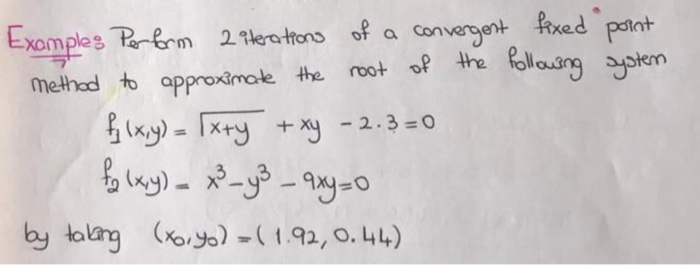 Examples Perform 2 iterations of a convergent fixed point
method to approximate the root of the following system
f₁(x,y) = √(x+y) + xy - 2.3 = 0
f₂(x,y) = x³ - y³ - 9xy = 0
by taking (x₀, y₀) = (1.92, 0.44)